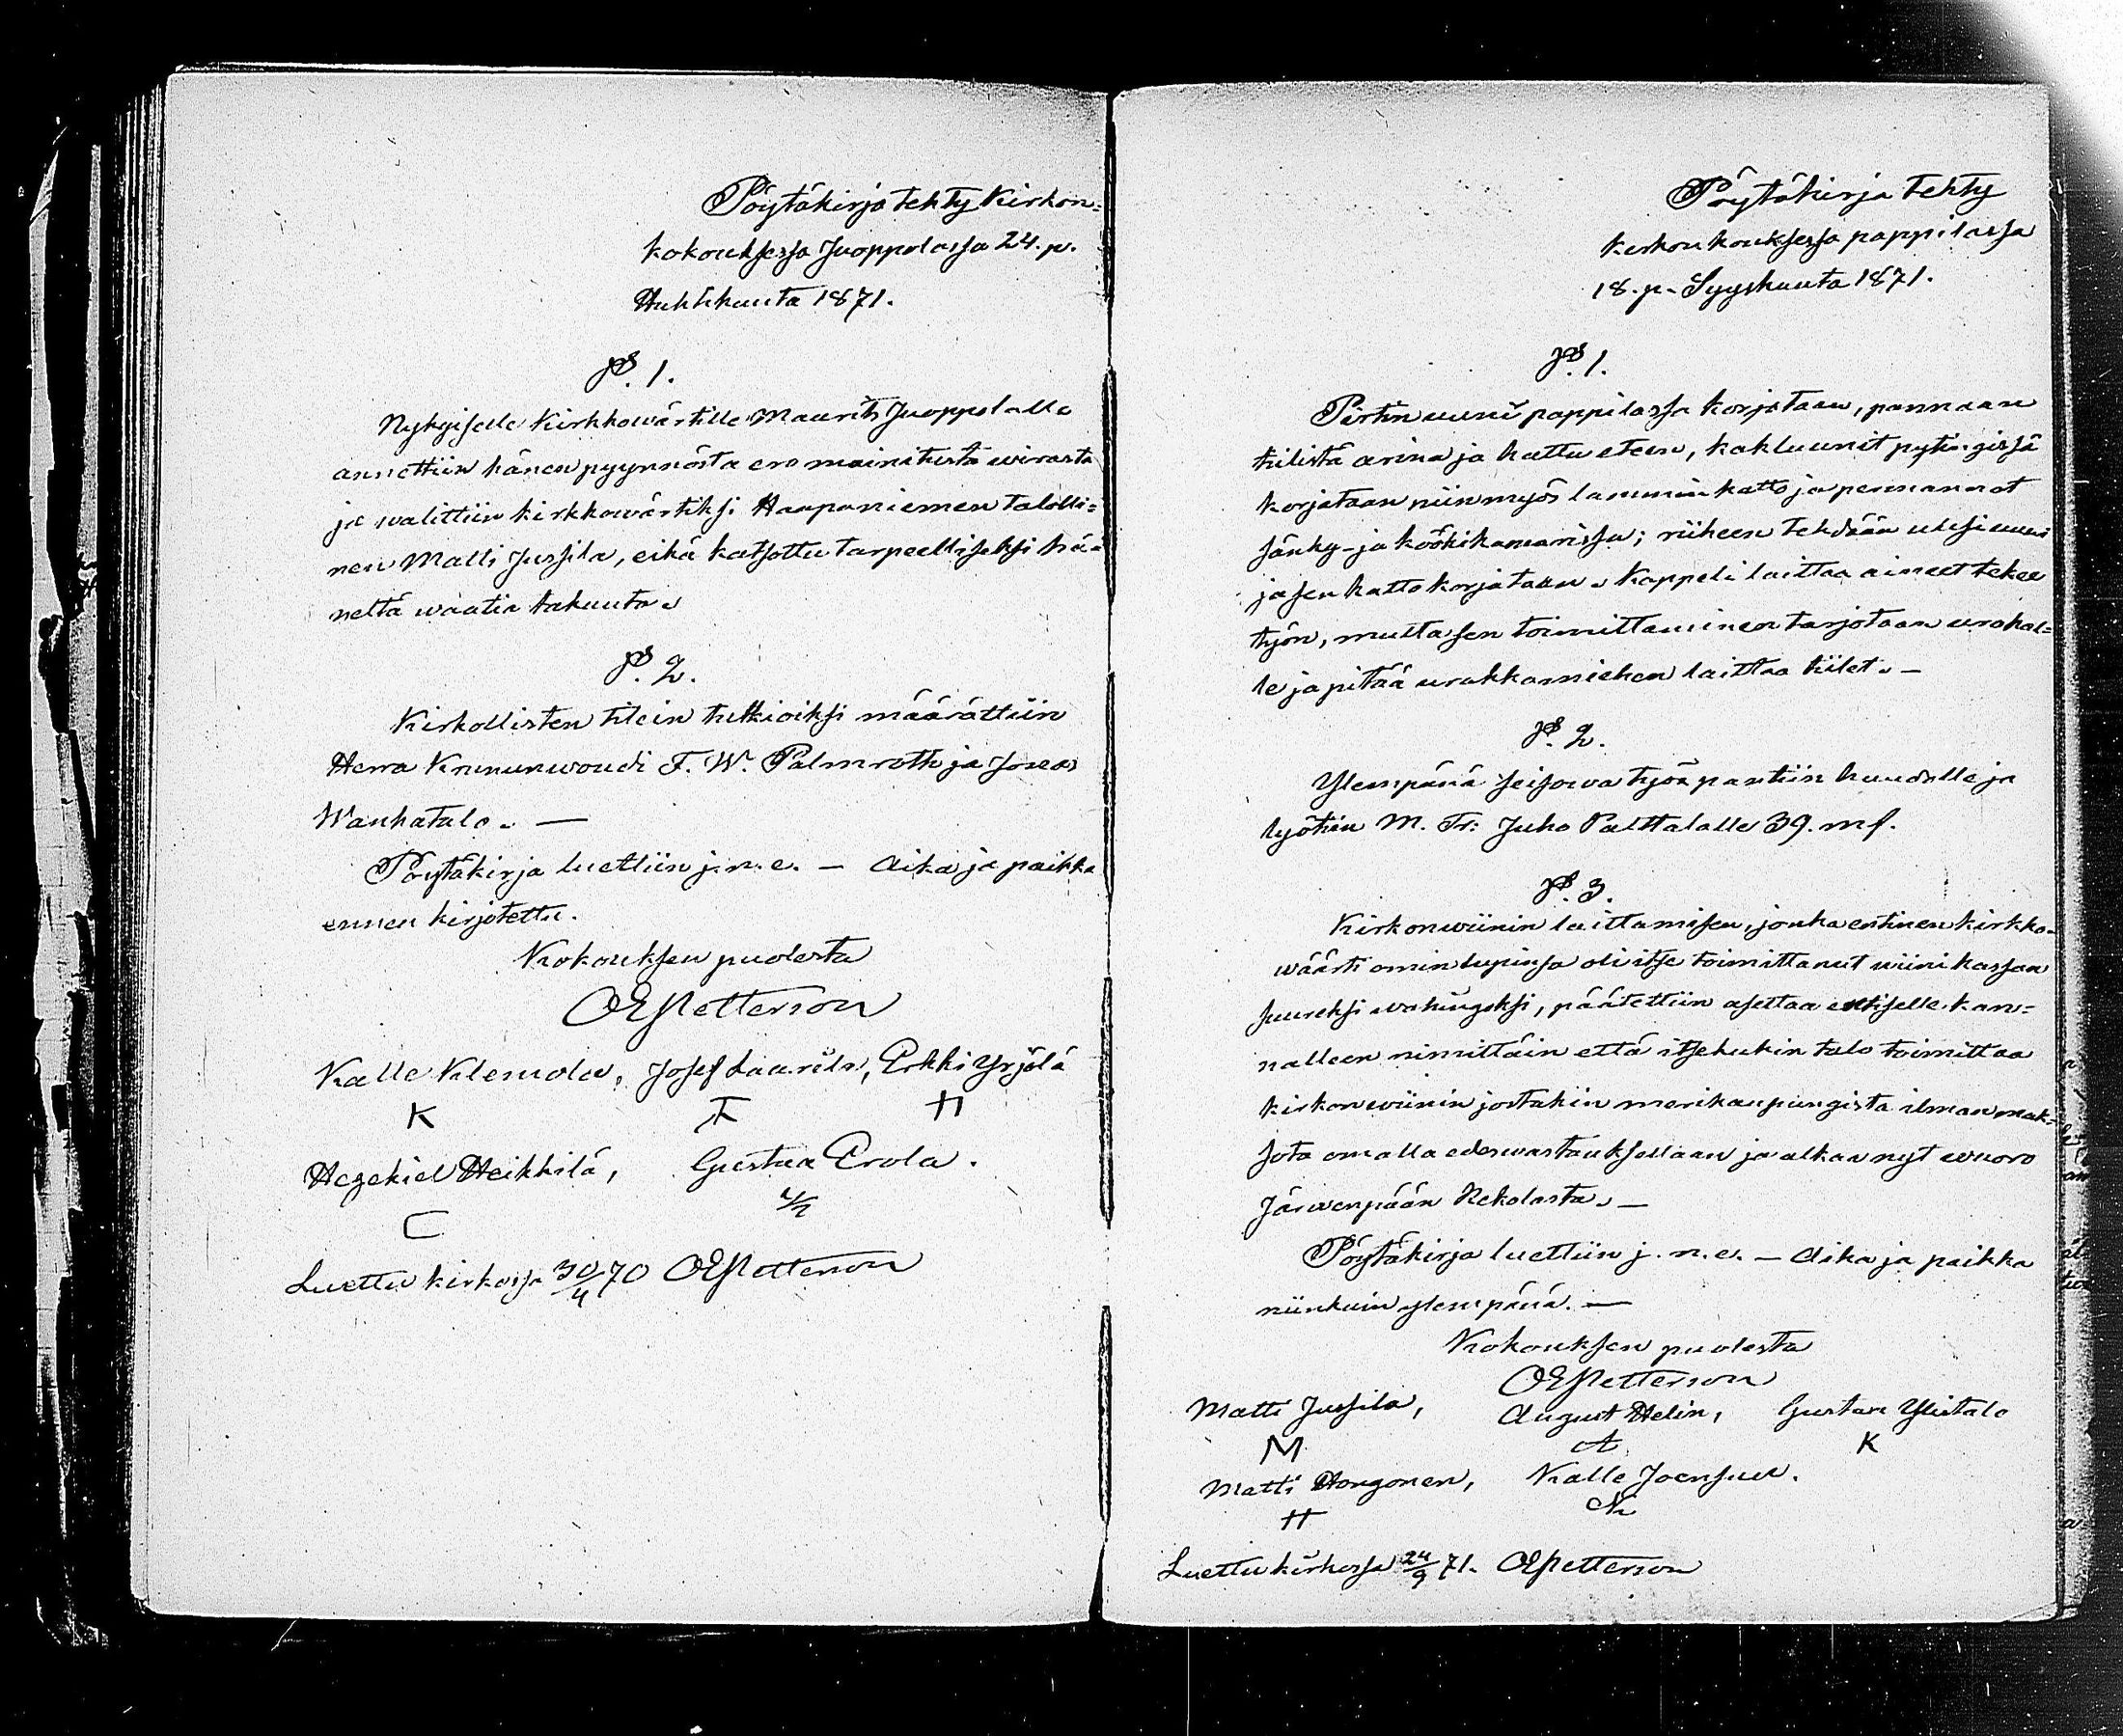 Pöytäkirja tehty Kirkon=
kokouksessa Juoppolassa 24. p.
Huhtikuuta 1871.
§. 1.
Nykyiselle Kirkkowärtille Maurits Juoppolalle
annettiin hänen pyynnöstä ero mainitusta wirasta
ja walittiin kirkkowärtiksi Haapaniemen talolli=
nen Matti Jussila, eikä katsottu tarpeelliseksi hä=
neltä waatia takuuta.
§. 2.
Kirkollisten tilein tutkioiksi määrättiin
Herra Kruununwouti F. W. Palmroth ja Joseas
Wanhatalo. —
Pöytäkirja luettiin j. n. e. — Aika ja paikka
ennen kirjotettu.
Kokouksen puolesta
OEPetterson
Kalle Klemola, Josef Laurila, Erkki Yrjölä
K H
Hezekiel Heikkilä, Gustaa Erola.
C
Luettu kirkossa 30/4 70 OEPetterson
Pöytäkirja tehty
Kirkonkouksessa pappilassa
18. p. Syyskuuta 1871.
§. 1.
Pirtin uuni pappilassa korjataan, pannaan
tiilistä arina ja hattu eteen, kakluunit pytingissä
korjataan niin myös lammin katto ja permannot
sänky- ja köökikamarissa; riiheen tehdään uusi uuni
ja sen katto korjataan. Kappeli laittaa aineet tekee
työn, mutta sen toimittaminen tarjotaan urakal=
le ja pitää urakkamiehen laittaa tiilet. —
§. 2.
Ylempänä seisowa työ pantiin huudolle ja
lyötiin M. Tr: Juho Palttalalle 39. mf.
§. 3.
Kirkonwiinin laittamisen, jonka entinen kirkko-
wäärti omin lupinsa oli itse toimittanut wiinikassan
suureksi wahingoksi, päätettiin asettaa entiselle kan=
nalleen nimittäin että itsekukin talo toimittaa
kirkonwiinin jostakin merikaupungista ilman mak=
sota omalla edeswastauksellaan ja alkaa nyt wuoro
Järwenpään Rekolasta. —
Pöytäkirja luettiin j. n. e. — Aika ja paikka
niinkuin ylempänä. —
Kokouksen puolesta
OEPetterson
Matti Jussila, August Helin, Gustaa Ylitalo
M A K
Matti Hongonen, Kalle Joensuu.
H
Luettu kirkossa 24/9 71. OEPetterson